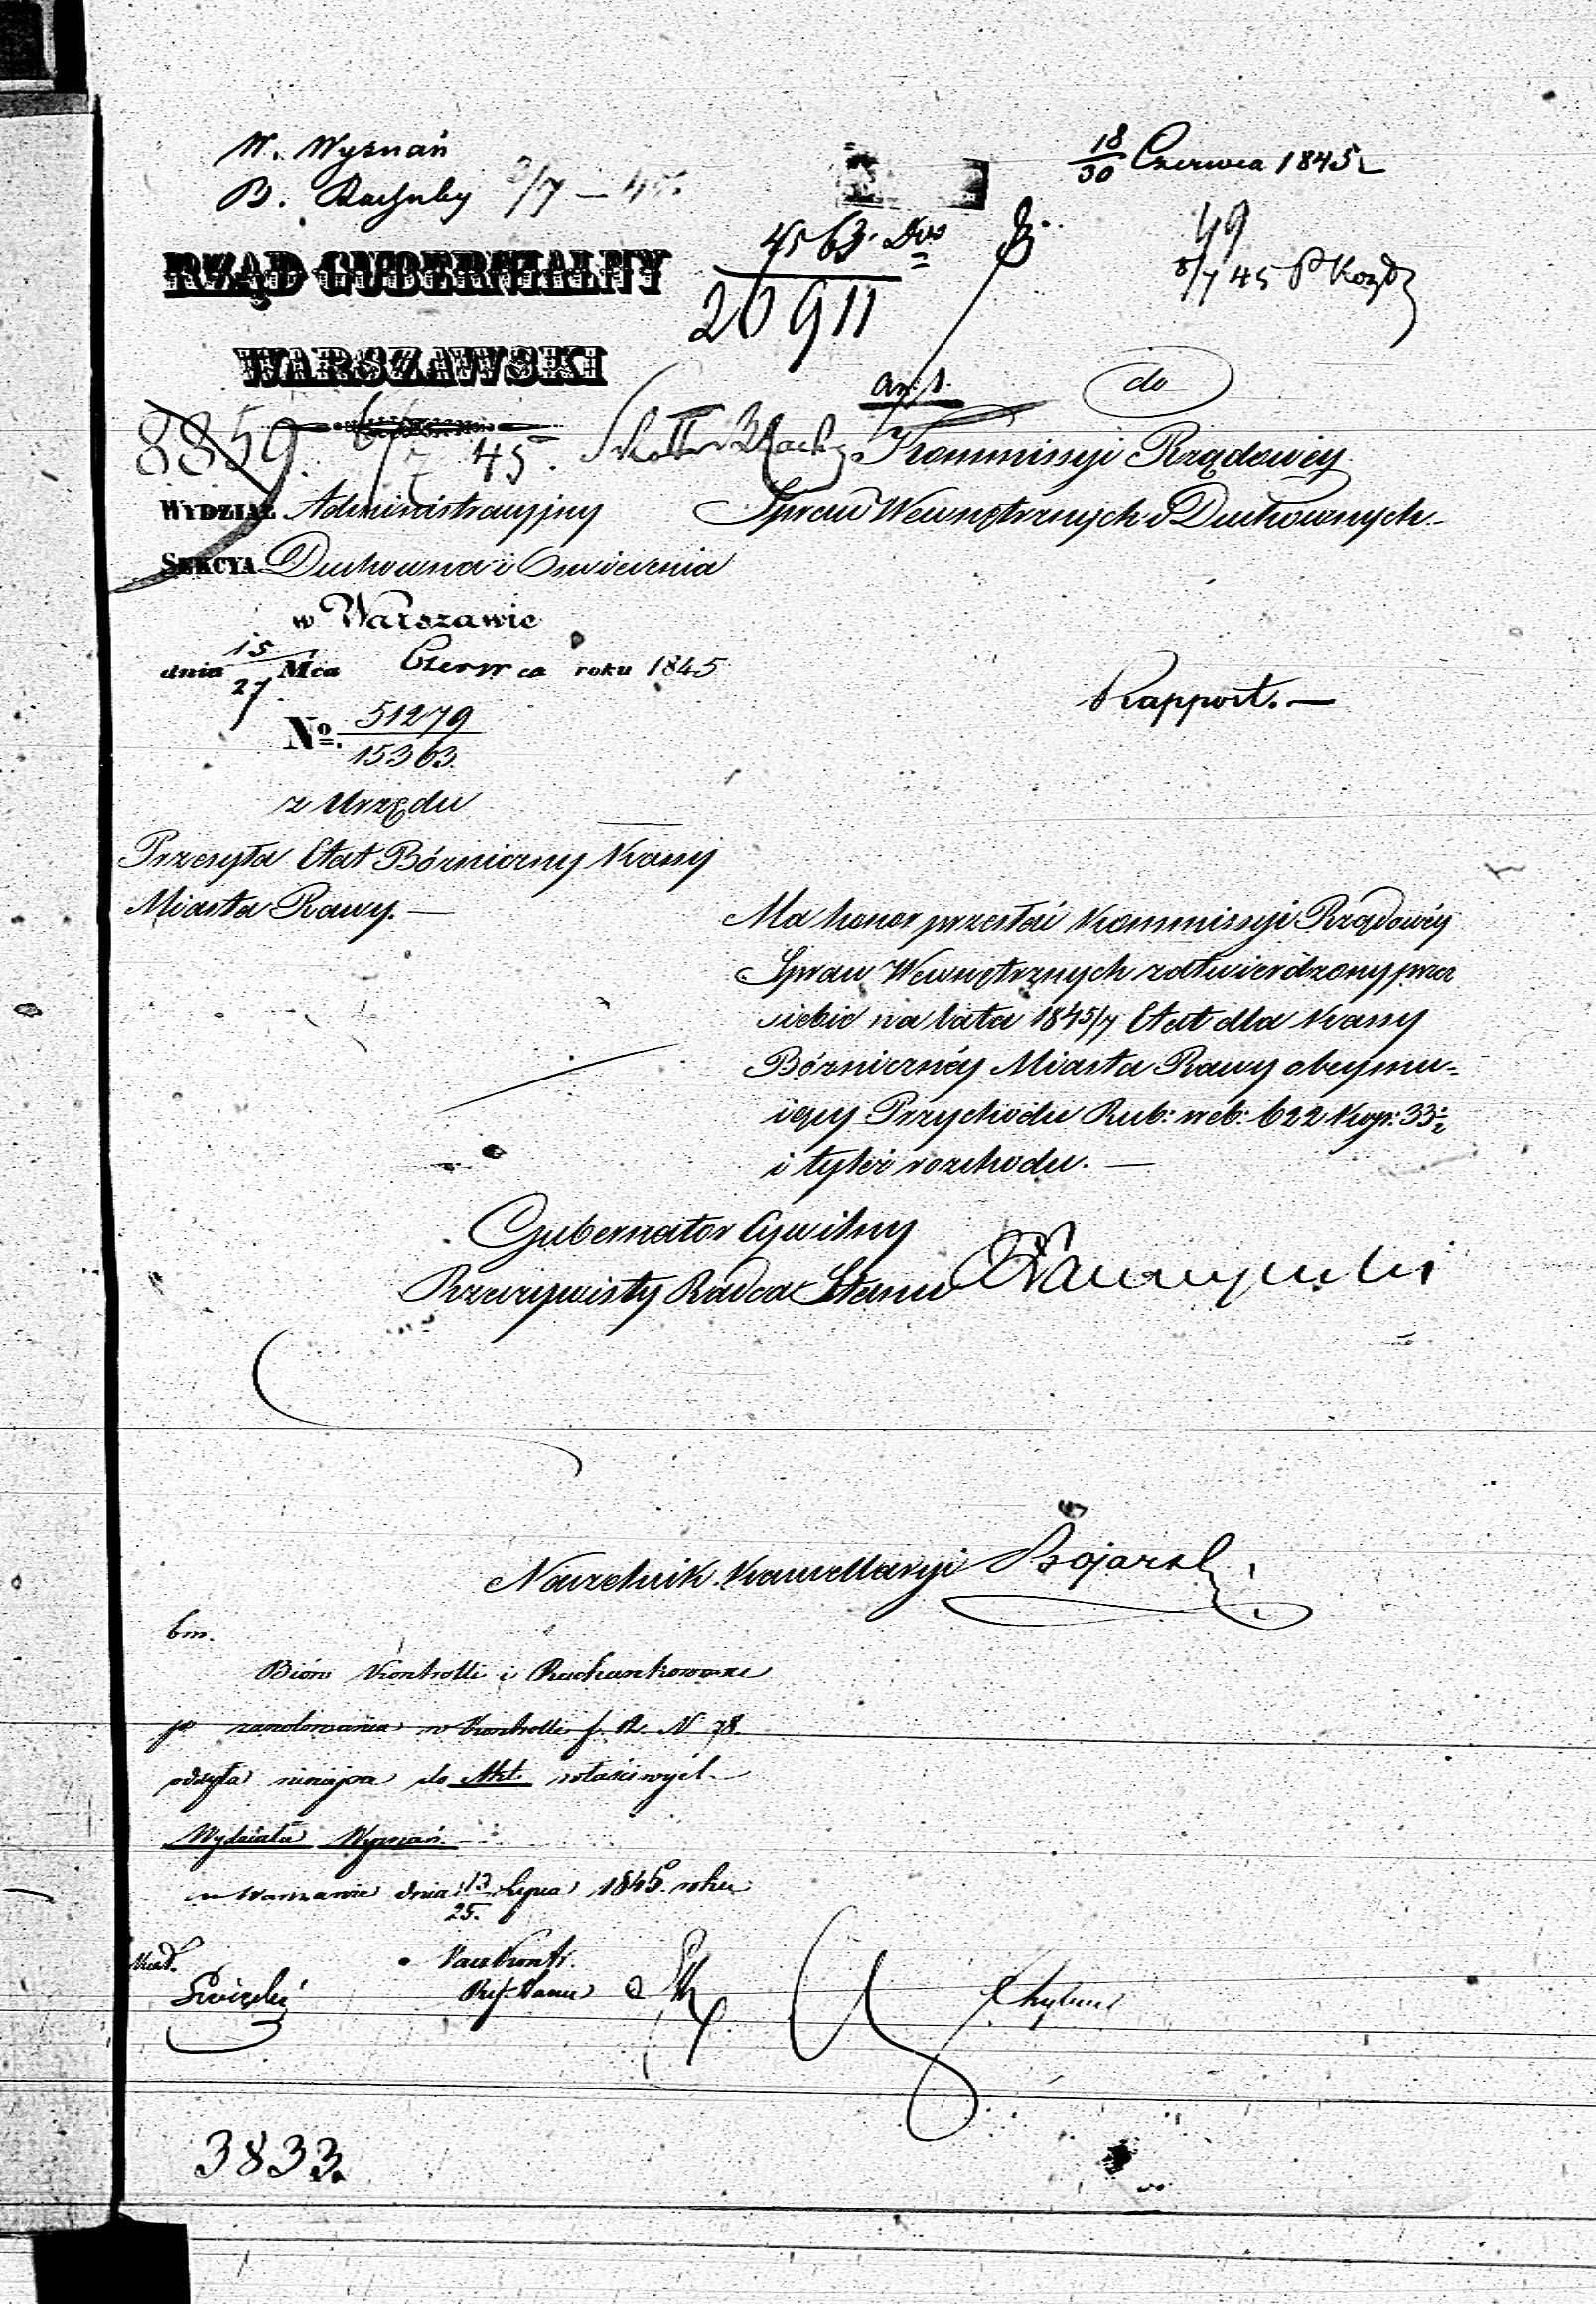 W. Wyznań
B. Rachuby 2/7 – 45.
18/30 Czerwca 1845
4563. Dvo
20911
49
8/7 45
RZĄD GUBERNIALNY
WARSZAWSKI
an. 1.
do
8859. 6/7 45.
Kommissyi Rządowéy
WYDZIAŁ Administracyjny
Spraw Wewnętrznych i Duchownych
SEKCYA Duchowna i Oświecenia
w Warszawie
dnia 15/27 Mca Czerwca roku 1845
Rapport. —
No. 51279
15363.
z Urzędu
Przesyła Etat Bóżniczny Kassy
Miasta Rawy. —
Ma honor przesłać Kommissyi Rządowéy
Spraw Wewnętrznych zatwierdzony przez
siebie na lata 1845/7 Etat dla Kassy
Bóżnicznéy Miasta Rawy obeymu-
iący Przychodu Rub: sreb: 622 kop: 33½
i tyleż rozchodu. —
Gubernator Cywilny
Rzeczywisty Radca Stanu
Naczelnik Kancellaryi Bojarski
bm.
Bióro Kontrolli i Rachunkowości
po zanotowaniu w Kontrolli f. R. N 78.
odsyła niniejsze do Akt. właściwych
Wydziału Wyznań
w Warszawie dnia 13/25 Lipca 1845 roku
3833.